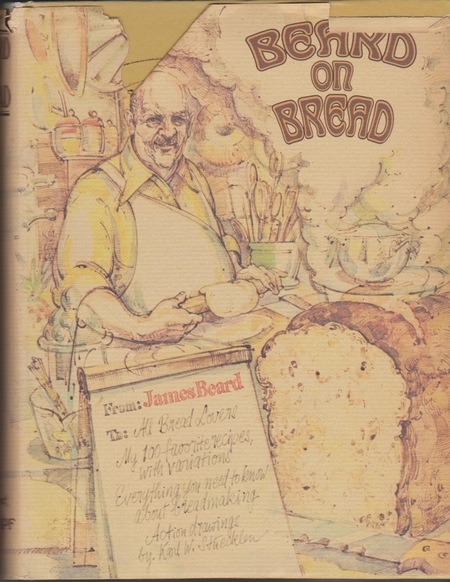 BEARD
on
BREAD
From: James Beard
To: All Bread Lovers
My 100 favorite recipes,
with variations
Everything you need to know
about breadmaking
Action drawings
by Karl W. Stuecklen